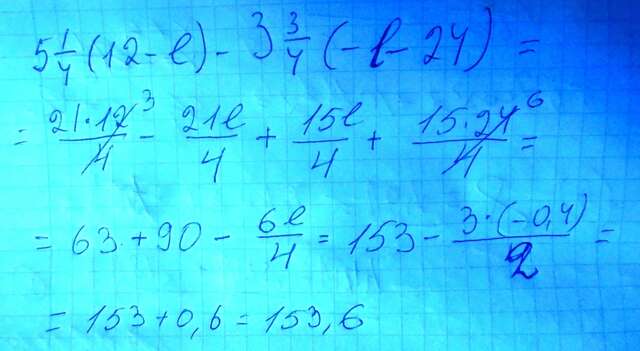 5 1/4 (12 - l) - 3 3/4 (-l - 24) =
= 21·12³/4 - 21l/4 + 15l/4 + 15·24⁶/4 =
= 63 + 90 - 6l/4 = 153 - 3·(-0,4)/2 =
= 153 + 0,6 = 153,6